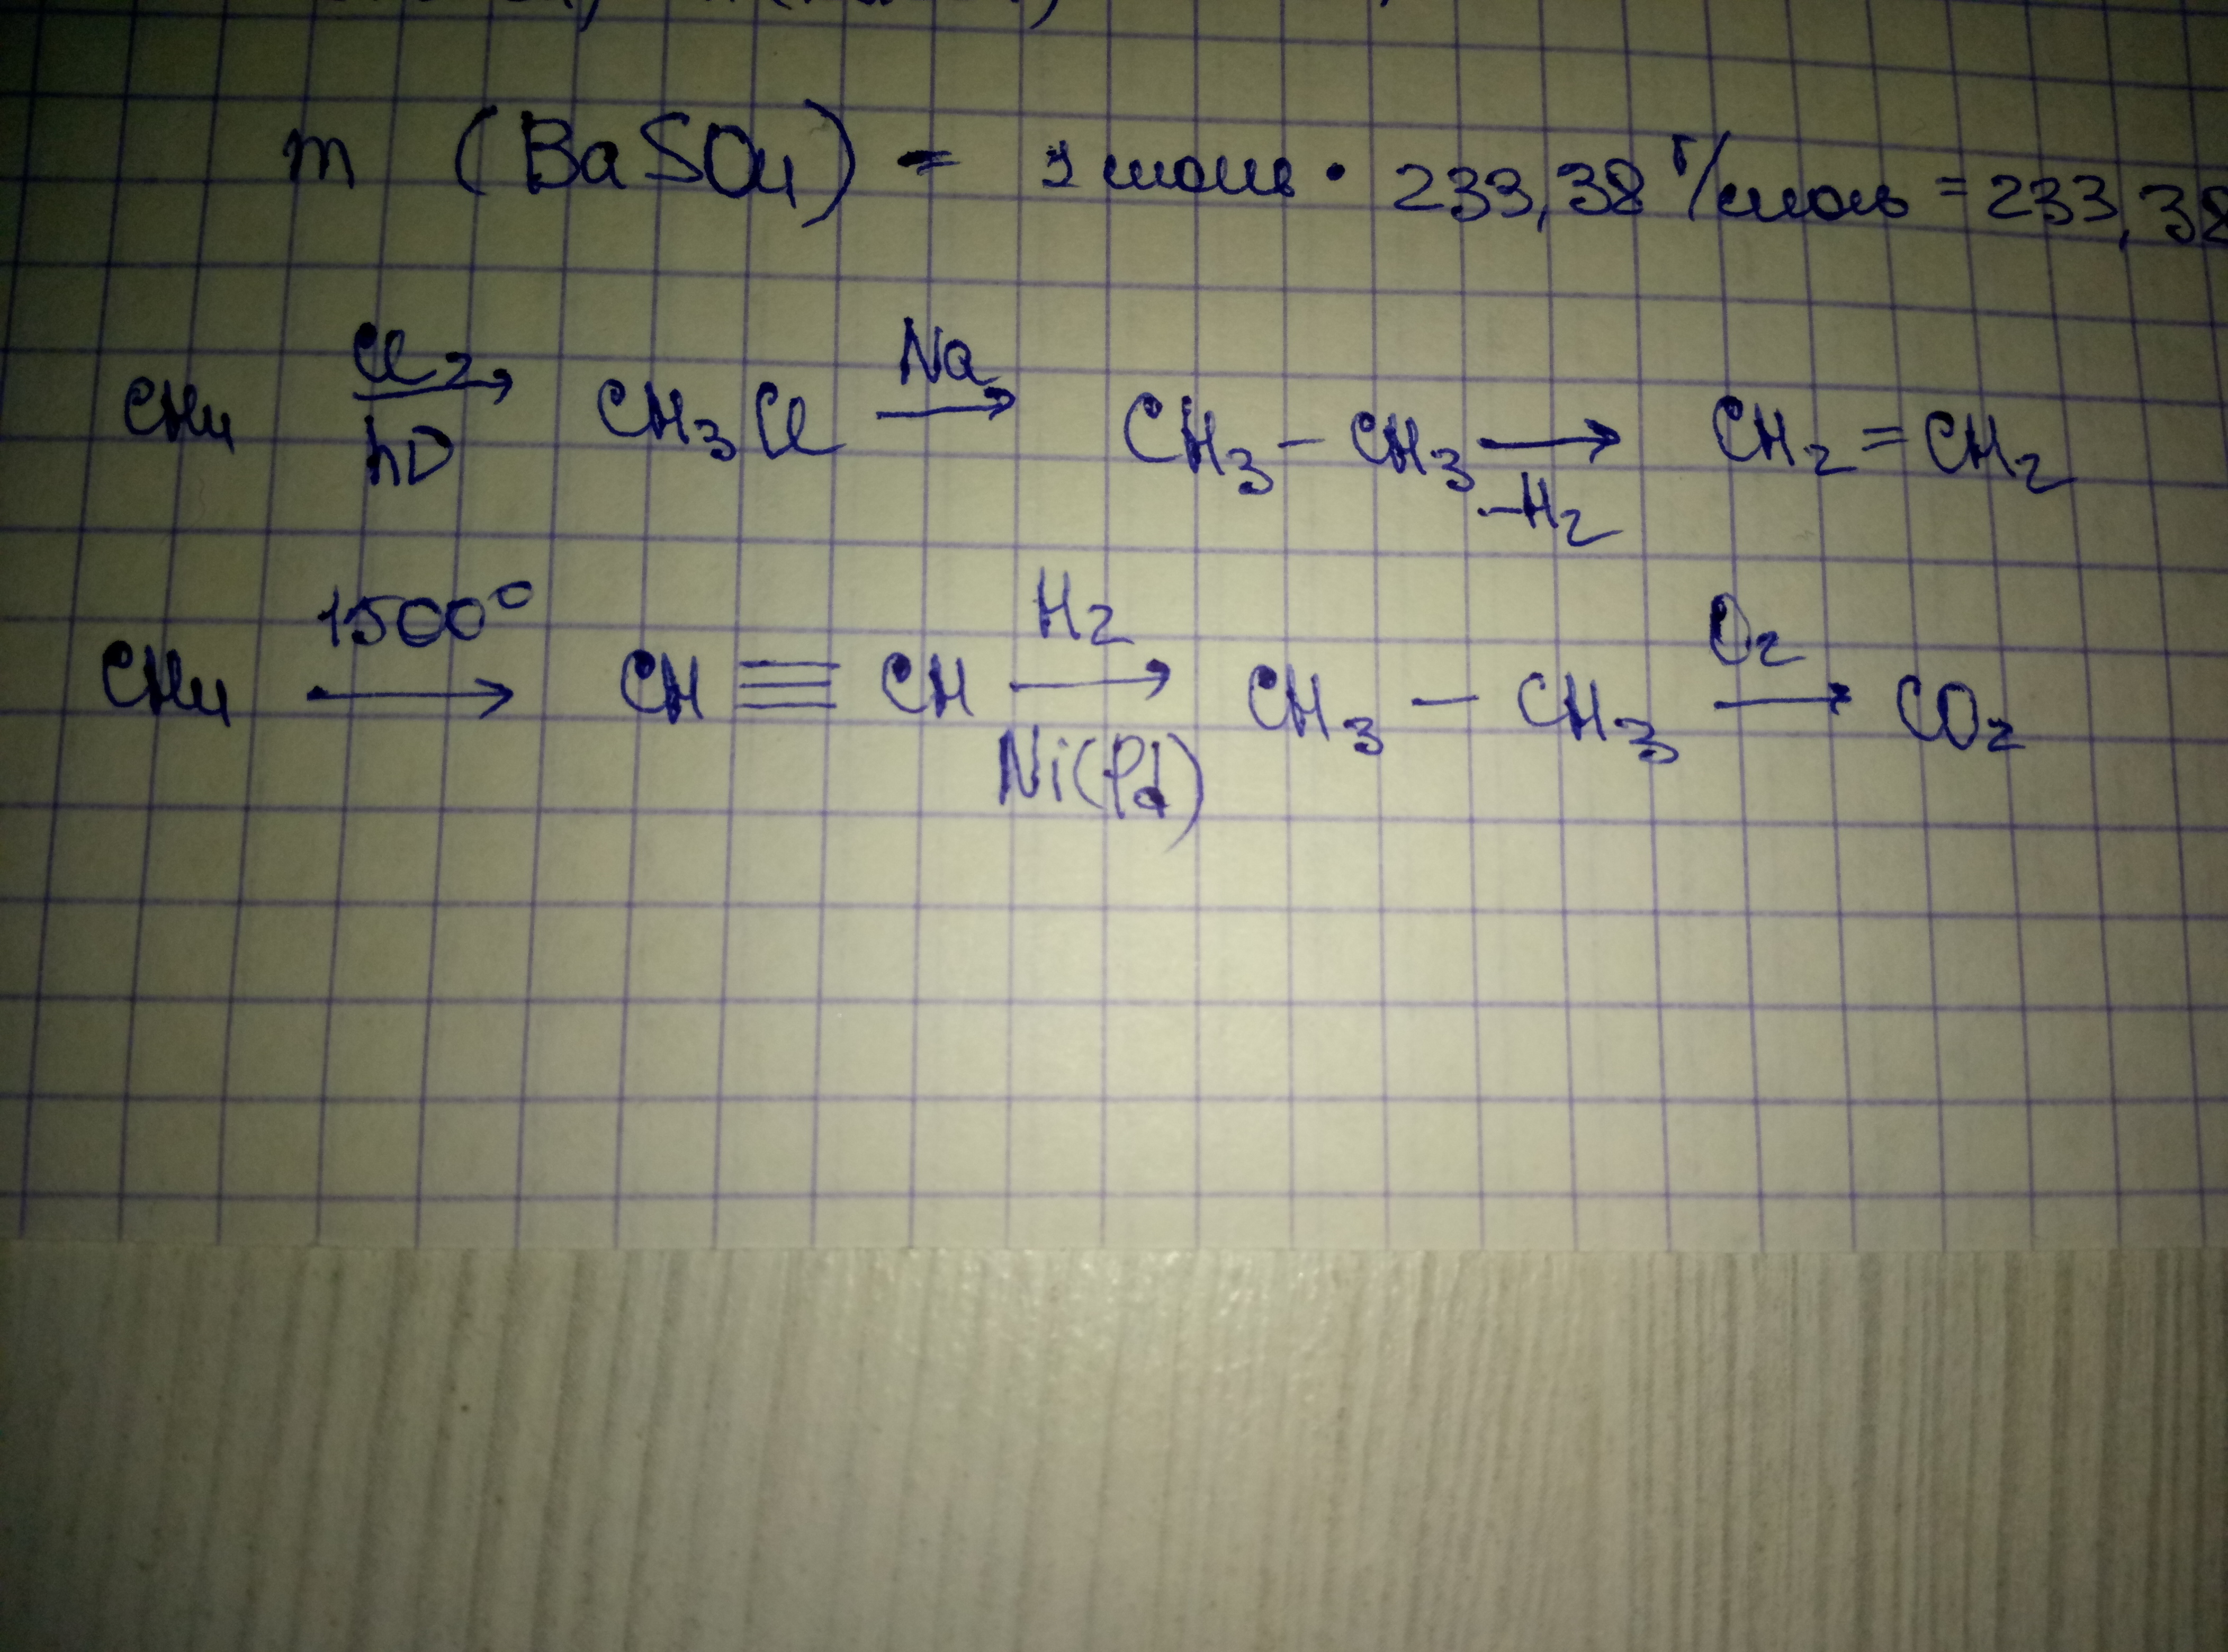 m (BaSO₄) = 1 моль • 233,38 г/моль = 233,38
CH₄ —Cl₂/hν→ CH₃Cl —Na→ CH₃ – CH₃ —–H₂→ CH₂ = CH₂
CH₄ —1500°→ CH ≡ CH —H₂/Ni(Pd)→ CH₃ – CH₃ —O₂→ CO₂